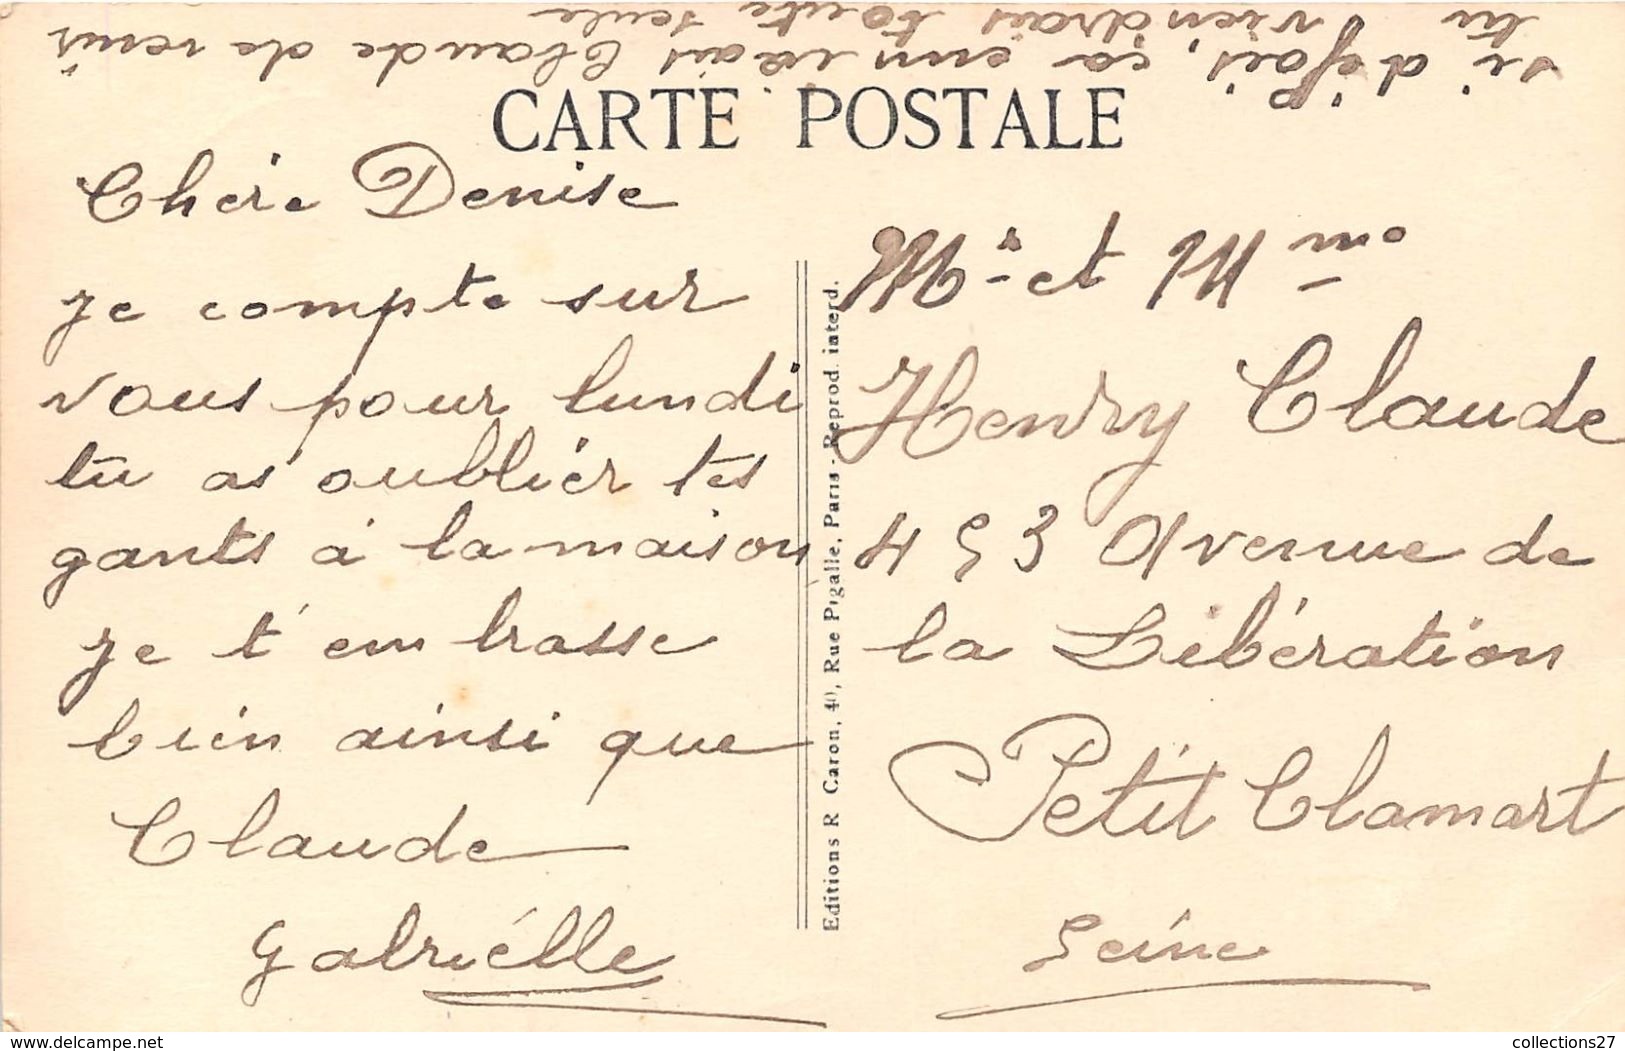 si défois, ça ennuiais Claude de venir
tu viendrais toute seule
CARTE POSTALE
Chérie Denise
je compte sur
vous pour lundi
tu as oubliér tes
gants à la maison
je t'embrasse
bien ainsi que
Claude
Gabriélle
Editions R Caron, 40, Rue Pigalle, Paris - Reprod. interd.
Mr et Mme
Henry Claude
453 Avenue de
la Libération
Petit Clamart
Seine
delcampe.net
collections27